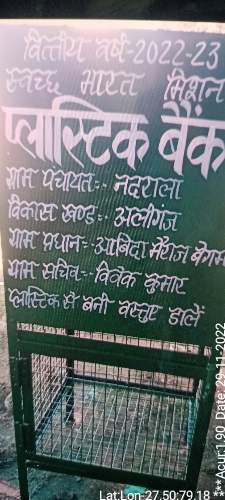 वित्तीय वर्ष-2022-23
स्वच्छ भारत मिशन
प्लास्टिक बैंक
ग्राम पंचायत:- नदराला
विकास खण्ड:- अलीगंज
ग्राम प्रधान:-आबिदा मैराज बेगम
ग्राम सचिव:- विवेक कुमार
प्लास्टिक से बनी वस्तुए डालें
Lat:Lon-27.50:79.18
***Acur:1.90 Date: 29-11-2022